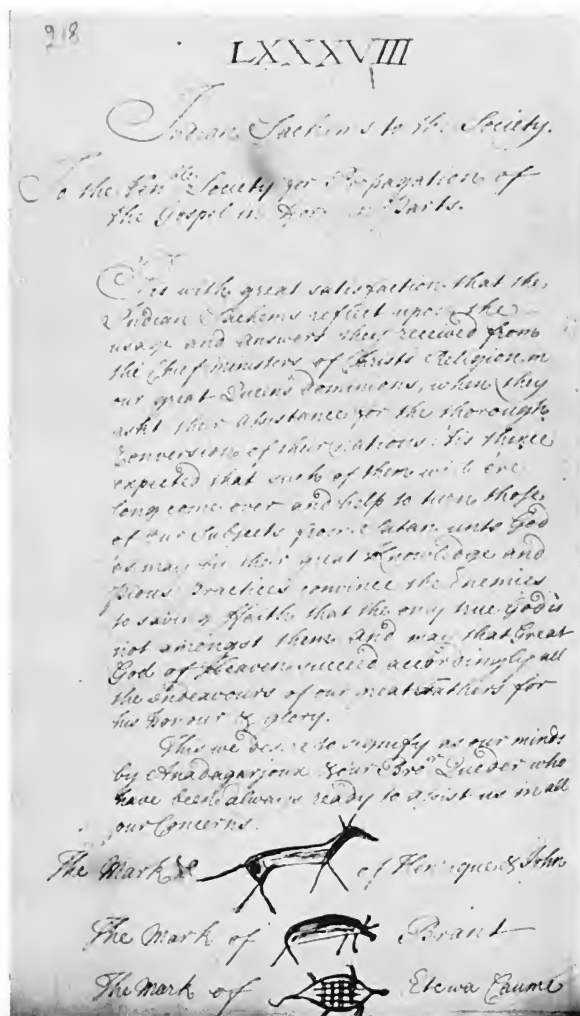 218
LXXXVIII
Indian Sachems to the Society.
To the Ven^ble Society for Propagation of
the Gospel in Parts.
Tis with great satisfaction that the
Indian Sachems reflect upon the
usage and answers they received from
the Chief ministers of Christs Religion in
our great Queens dominions, when they
askt their assistance for the thorough
Conversion of their nations. Tis thence
expected that such of them will e're
long come over and help to turn those
of our Subjects from Satan unto God
as may by their great Knowledge and
pious Practices convince the Enemies
to saving ffaith that the only true God is
not amongst them and may that Great
God of Heaven succeed accordingly all
the Endeavours of our great ffathers for
his honour & glory.
This we desire to signify as our minds
by Anadagarjoux & our Bro^r Queder who
have been always ready to assist us in all
our Concerns.
The Mark of Henrique & John
The Mark of Brant
The Mark of Etewa Caume